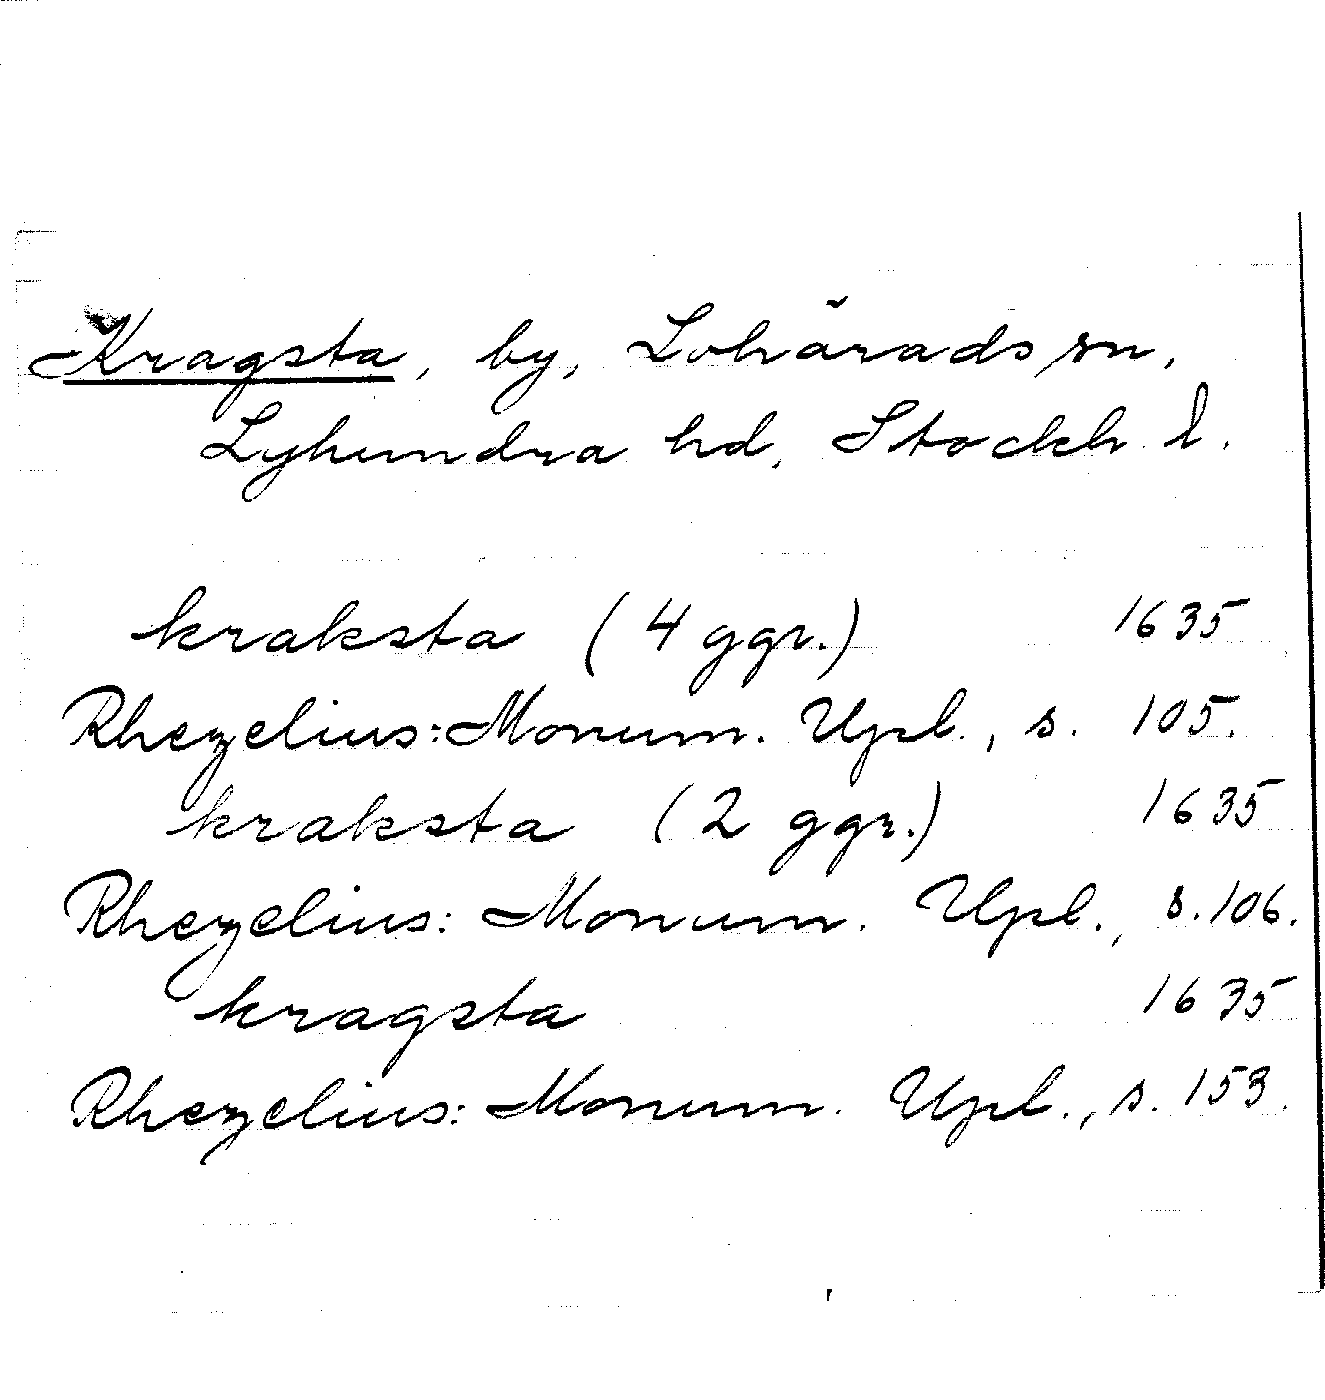 Kragsta, by, Lohärads sn,
Lyhundra hd, Stockh l.
kraksta (4 ggr.) 1635
Rhezelius: Monum. Upl., s. 105.
kraksta (2 ggr.) 1635
Rhezelius: Monum. Upl., s. 106.
kragsta 1635
Rhezelius: Monum. Upl., s. 153.